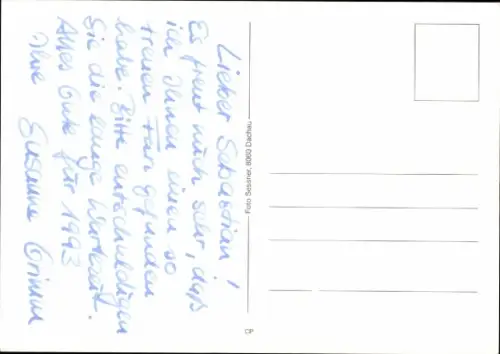 Lieber Sebastian!
Es freut mich sehr, daß
ich Ihnen einen so
treuen Fan gefunden
habe. Bitte entschuldigen
Sie die lange Wartezeit.
Alles Gute für 1993
Ihre Susanne Grimm
Foto Sessner, 8060 Dachau
CP